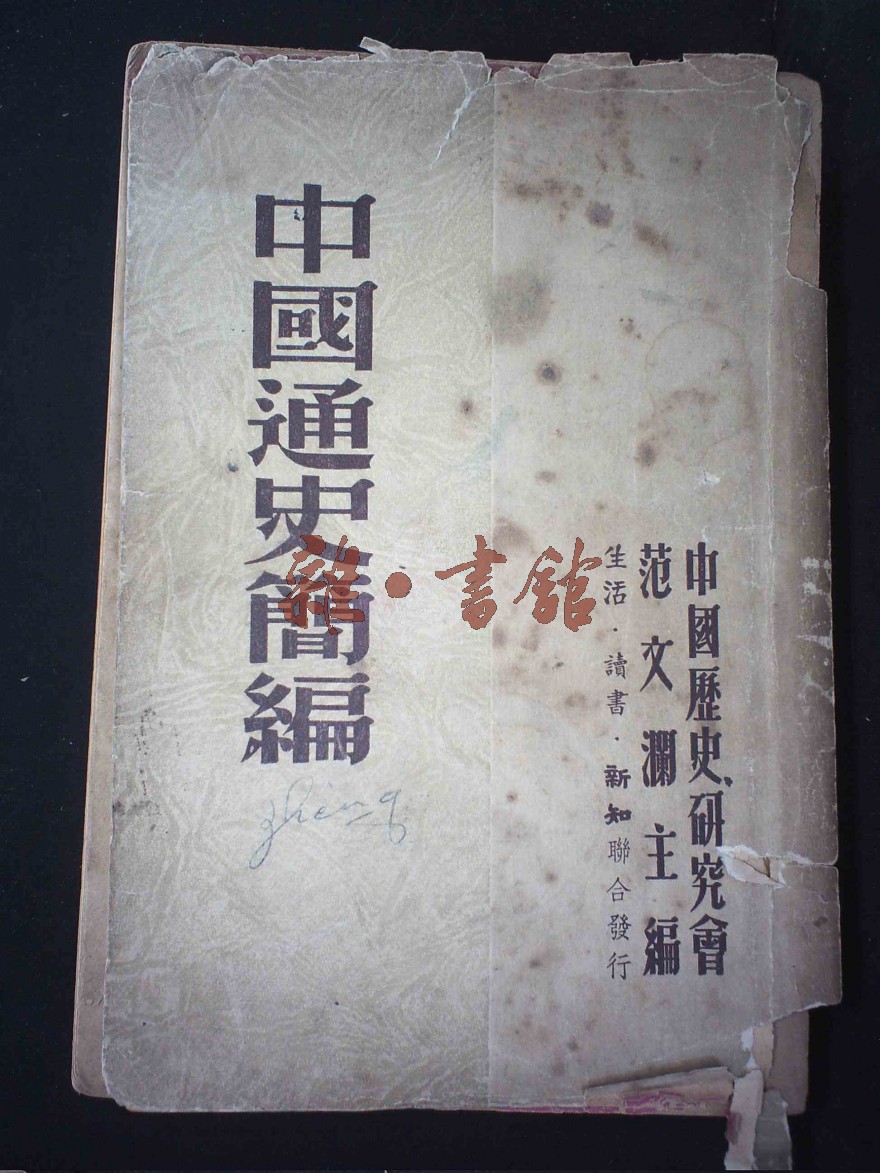 中國歷史研究會
范文瀾主編
生活·讀書·新知聯合發行
中國通史簡編
龍·書館
zheng